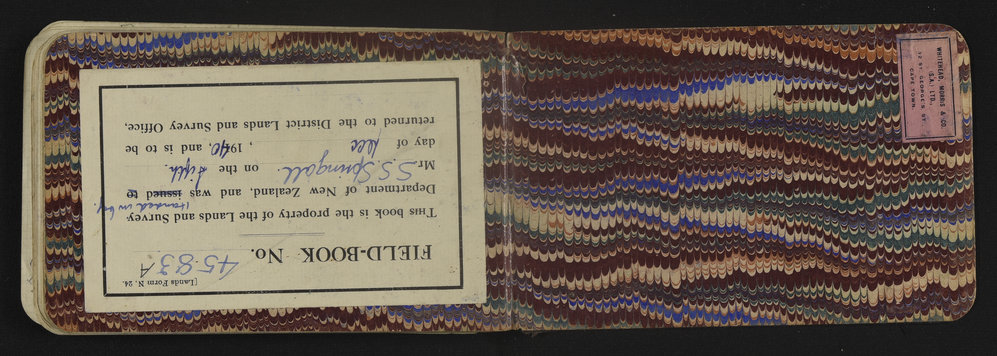 [Lands Form N. 24.
FIELD-BOOK No. 4583A
This book is the property of the Lands and Survey
Department of New Zealand, and was issued to
Handed in by
Mr. S.S. Spurgall. on the
day of Dec , 1940, and is to be
returned to the District Lands and Survey Office,
WHITEHEAD, MORRIS & CO.
(S.A.) LTD.,
ST. GEORGE'S ST.
CAPE TOWN.